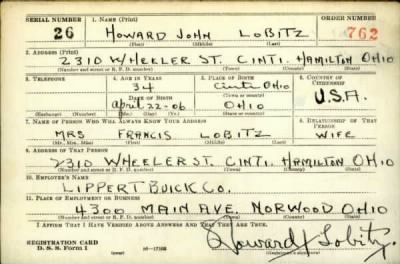 SERIAL NUMBER 1. NAME (Print) ORDER NUMBER
26 HOWARD JOHN LOBITZ 762
(First) (Middle) (Last)
2. ADDRESS (Print)
2310 WHEELER ST. CINTI. HAMILTON OHIO
(Number and street or R. F. D. number) (Town) (County) (State)
3. TELEPHONE 4. AGE IN YEARS 5. PLACE OF BIRTH 6. COUNTRY OF CITIZENSHIP
34 Cinti Ohio
DATE OF BIRTH (Town or county) U.S.A.
April-22-06 OHIO
(Exchange) (Number) (Mo.) (Day) (Yr.) (State or country)
7. NAME OF PERSON WHO WILL ALWAYS KNOW YOUR ADDRESS 8. RELATIONSHIP OF THAT PERSON
MRS FRANCIS LOBITZ WIFE
(Mr., Mrs., Miss) (First) (Middle) (Last)
9. ADDRESS OF THAT PERSON
2310 WHEELER ST. CINTI. HAMILTON OHIO
(Number and street or R. F. D. number) (Town) (County) (State)
10. EMPLOYER'S NAME
LIPPERT BUICK CO.
11. PLACE OF EMPLOYMENT OR BUSINESS
4300 MAIN AVE. NORWOOD OHIO
(Number and street or R. F. D. number) (Town) (County) (State)
I AFFIRM THAT I HAVE VERIFIED ABOVE ANSWERS AND THAT THEY ARE TRUE.
REGISTRATION CARD
D. S. S. Form 1 16—17105 Howard J Lobitz